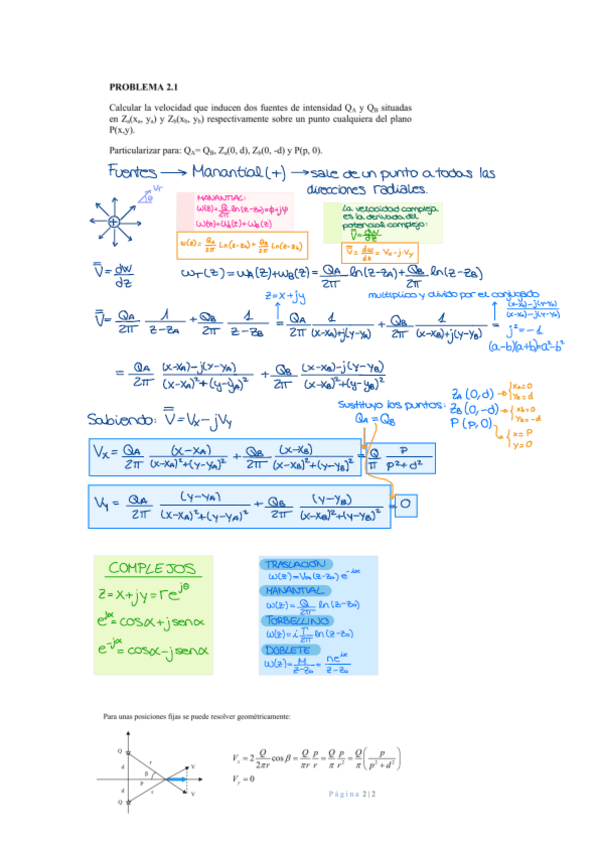 PROBLEMA 2.1
Calcular la velocidad que inducen dos fuentes de intensidad Q_A y Q_B situadas
en Z_a(x_a, y_a) y Z_b(x_b, y_b) respectivamente sobre un punto cualquiera del plano
P(x,y).
Particularizar para: Q_A= Q_B, Z_a(0, d), Z_b(0, -d) y P(p, 0).
Fuentes → Manantial (+) → sale de un punto a todas las
direcciones radiales.
Vr
θ
+
MANANTIAL:
ω(z) = Q/2π ln(z-z₀) = φ+jψ
ω(z) = ω_A(z) + ω_B(z)
ω(z) = Q_A/2π Ln(z-z_A) + Q_B/2π Ln(z-z_B)
La velocidad compleja
es la derivada del
potencial complejo:
V̄ = dω/dz
V̄ = dω/dz = Vx - j·Vy
V̄ = dω/dz
ω_T(z) = ω_A(z) + ω_B(z) = Q_A/2π ln(z-z_A) + Q_B/2π ln(z-z_B)
z = x+jy
multiplico y divido por el conjugado
(x-x_A)-j(y-y_A) / (x-x_A)-j(y-y_A)
V̄ = Q_A/2π 1/(z-z_A) + Q_B/2π 1/(z-z_B) = Q_A/2π 1/((x-x_A)+j(y-y_A)) + Q_B/2π 1/((x-x_B)+j(y-y_B)) =
j² = -1
(a-b)(a+b)=a²-b²
= Q_A/2π ((x-x_A)-j(y-y_A))/((x-x_A)²+(y-y_A)²) + Q_B/2π ((x-x_B)-j(y-y_B))/((x-x_B)²+(y-y_B)²)
Sustituyo los puntos:
Q_A = Q_B
Z_A (0,d) → x_A=0 y_A=d
Z_B (0,-d) → x_B=0 y_B=-d
P (p,0) → x=P y=0
Sabiendo: V̄ = Vx - jVy
Vx = Q_A/2π (x-x_A)/((x-x_A)²+(y-y_A)²) + Q_B/2π (x-x_B)/((x-x_B)²+(y-y_B)²) = Q/π P/(P²+d²)
Vy = Q_A/2π (y-y_A)/((x-x_A)²+(y-y_A)²) + Q_B/2π (y-y_B)/((x-x_B)²+(y-y_B)²) = 0
COMPLEJOS
z = x+jy = re^jθ
e^jα = cosα + jsenα
e^-jα = cosα - jsenα
TRASLACIÓN
ω(z) = V∞(z-z₀)e^-iα
MANANTIAL
ω(z) = Q/2π ln(z-z₀)
TORBELLINO
ω(z) = i Γ/2π ln(z-z₀)
DOBLETE
ω(z) = M/(z-z₀) = me^iα/(z-z₀)
Para unas posiciones fijas se puede resolver geométricamente:
Q
d
r
β
p
V
d
r
V
Q
V_x = 2 Q/2πr cos β = Q/πr p/r = Q/π p/r² = Q/π (p/(p²+d²))
V_y = 0
Página 2|2